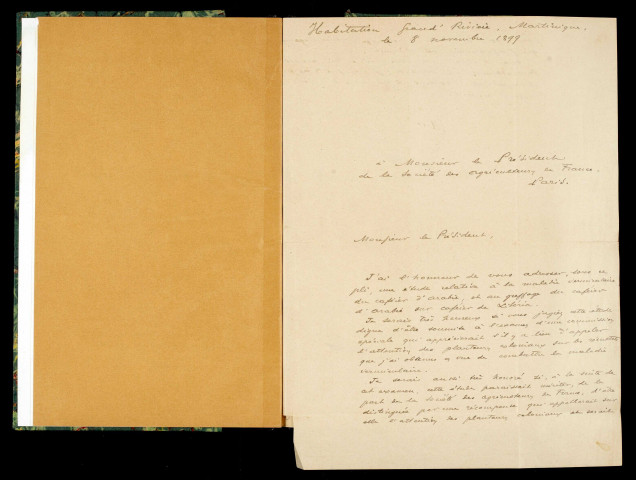 Habitation Grand' Rivière, Martinique,
le 8 novembre 1899
à Monsieur le Président
de la Société des agriculteurs de France,
Paris.
Monsieur le Président,
J'ai l'honneur de vous adresser, sous ce
pli, une étude relative à la maladie vermiculaire
du caféier d'Arabie, et au greffage du caféier
d'Arabie sur caféier de Libéria.
Je serais très heureux si vous jugiez cette étude
digne d'être soumise à l'examen d'une commission
spéciale qui apprécierait s'il y a lieu d'appeler
l'attention des planteurs coloniaux sur les résultats
que j'ai obtenus en vue de combattre la maladie
vermiculaire.
Je serais aussi très honoré si, à la suite de
cet examen, cette étude paraissait mériter, de la
part de la Société des agriculteurs de France, d'être
distinguée par une récompense qui appellerait sur
elle l'attention des planteurs coloniaux et serait